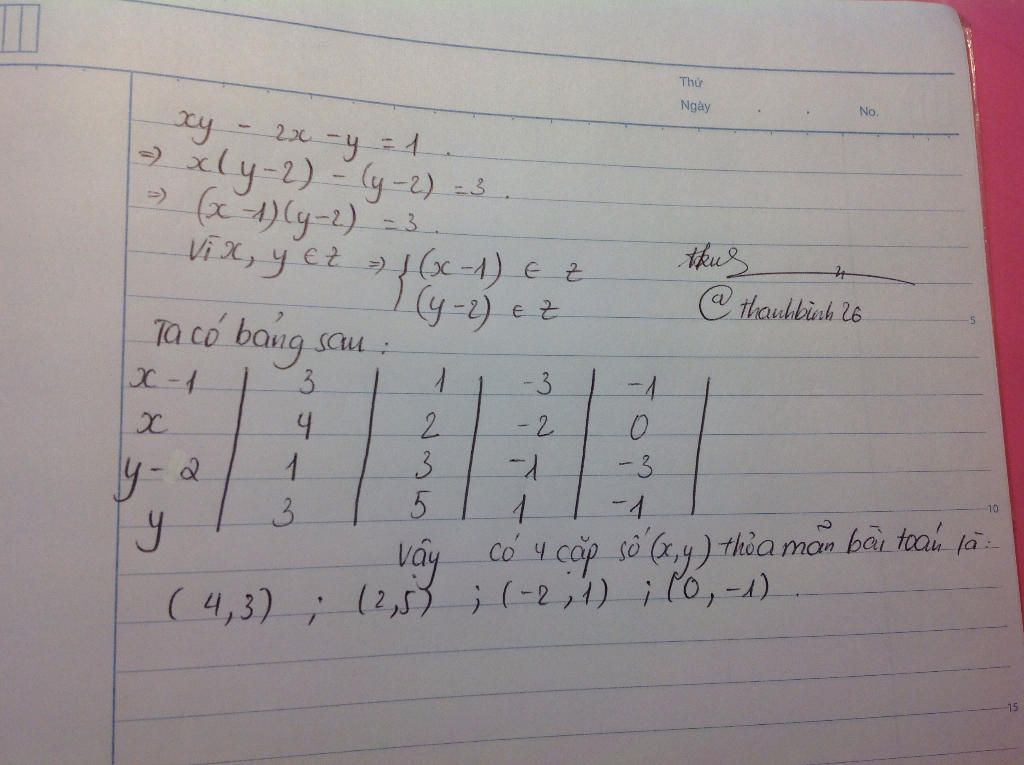 Thứ
Ngày . . No.
xy - 2x - y = 1 .
=> x(y-2) - (y-2) = 3 .
=> (x-1)(y-2) = 3 .
Vì x, y ∈ Z => { (x-1) ∈ Z
(y-2) ∈ Z
@ thanhbinh 26
5
Ta có bảng sau :
x-1 | 3 | 1 | -3 | -1 |
x | 4 | 2 | -2 | 0 |
y-2 | 1 | 3 | -1 | -3 |
y | 3 | 5 | 1 | -1 |
10
Vậy có 4 cặp số (x,y) thỏa mãn bài toán là :
(4,3) ; (2,5) ; (-2,1) ; (0,-1) .
15